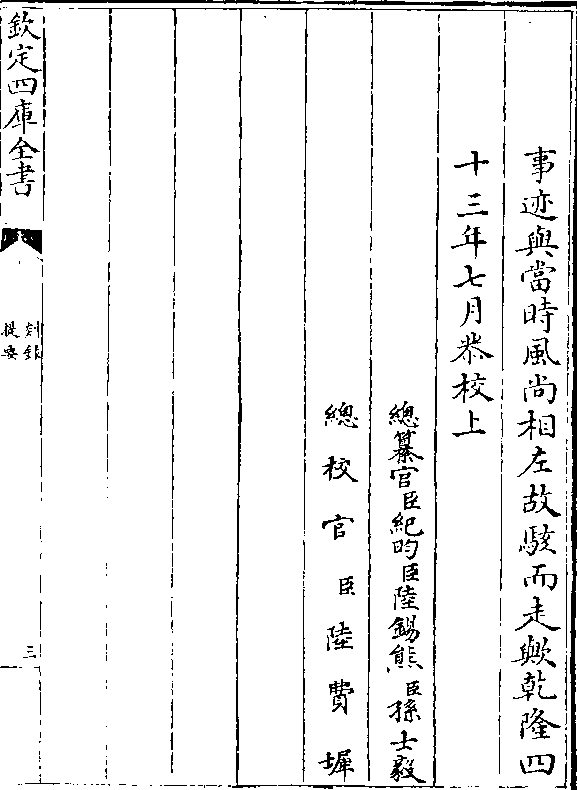 事迹與當時風尚相左故駭而走歟乾隆四
十三年七月恭校上
總纂官臣紀昀臣陸錫熊臣孫士毅
總校官臣陸費墀
欽定四庫全書
剡錄
提要
三